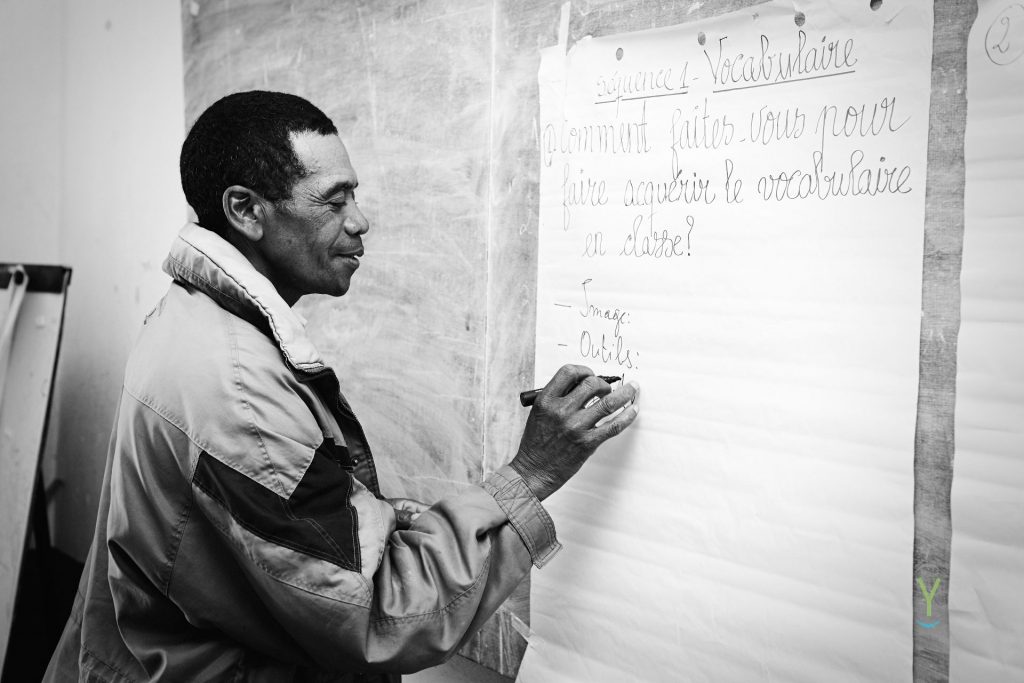 Séquence 1 - Vocabulaire
Comment faites-vous pour
faire acquérir le vocabulaire
en classe?
- Image:
- Outils:
2
Y